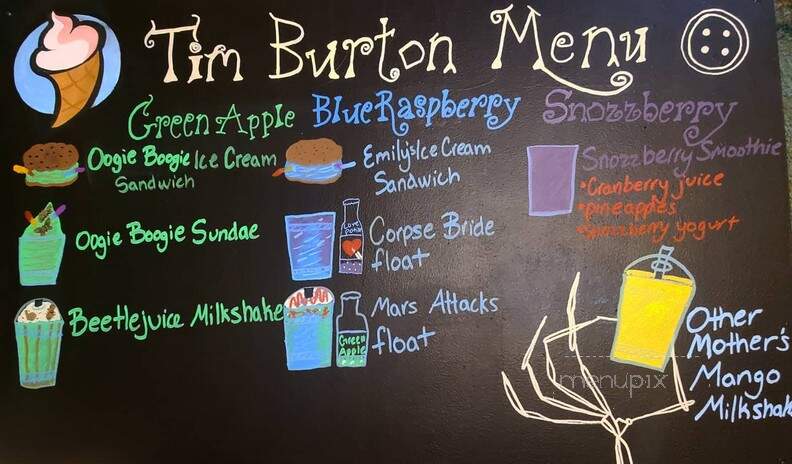 Tim Burton Menu
Green Apple
Oogie Boogie Ice Cream
Sandwich
Oogie Boogie Sundae
Beetlejuice Milkshake
Blue Raspberry
Emily's Ice Cream
Sandwich
Love
Potion
Corpse Bride
float
Mars Attacks
float
Green
Apple
Snozzberry
Snozzberry Smoothie
•Cranberry juice
•pineapples
•Snozzberry yogurt
Other
Mother's
Mango
Milkshake
menupix